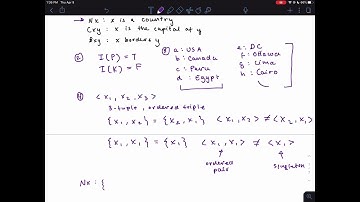 7:33 PM Thu Apr 9
Nx : x is a country
Cxy : x is the capital of y
Bxy : x borders y
I(P) = T
I(K) = F
a : USA
b : Canada
c : Peru
d : Egypt
e : DC
f : Ottawa
g : Lima
h : Cairo
< x₁, x₂, x₃ >
3-tuple, ordered triple
{x₁, x₂} = {x₂, x₁} <x₁, x₂> ≠ <x₂, x₁>
{x₁, x₁} = {x₁} <x₁, x₁> ≠ <x₁>
ordered pair
singleton
Nx : {